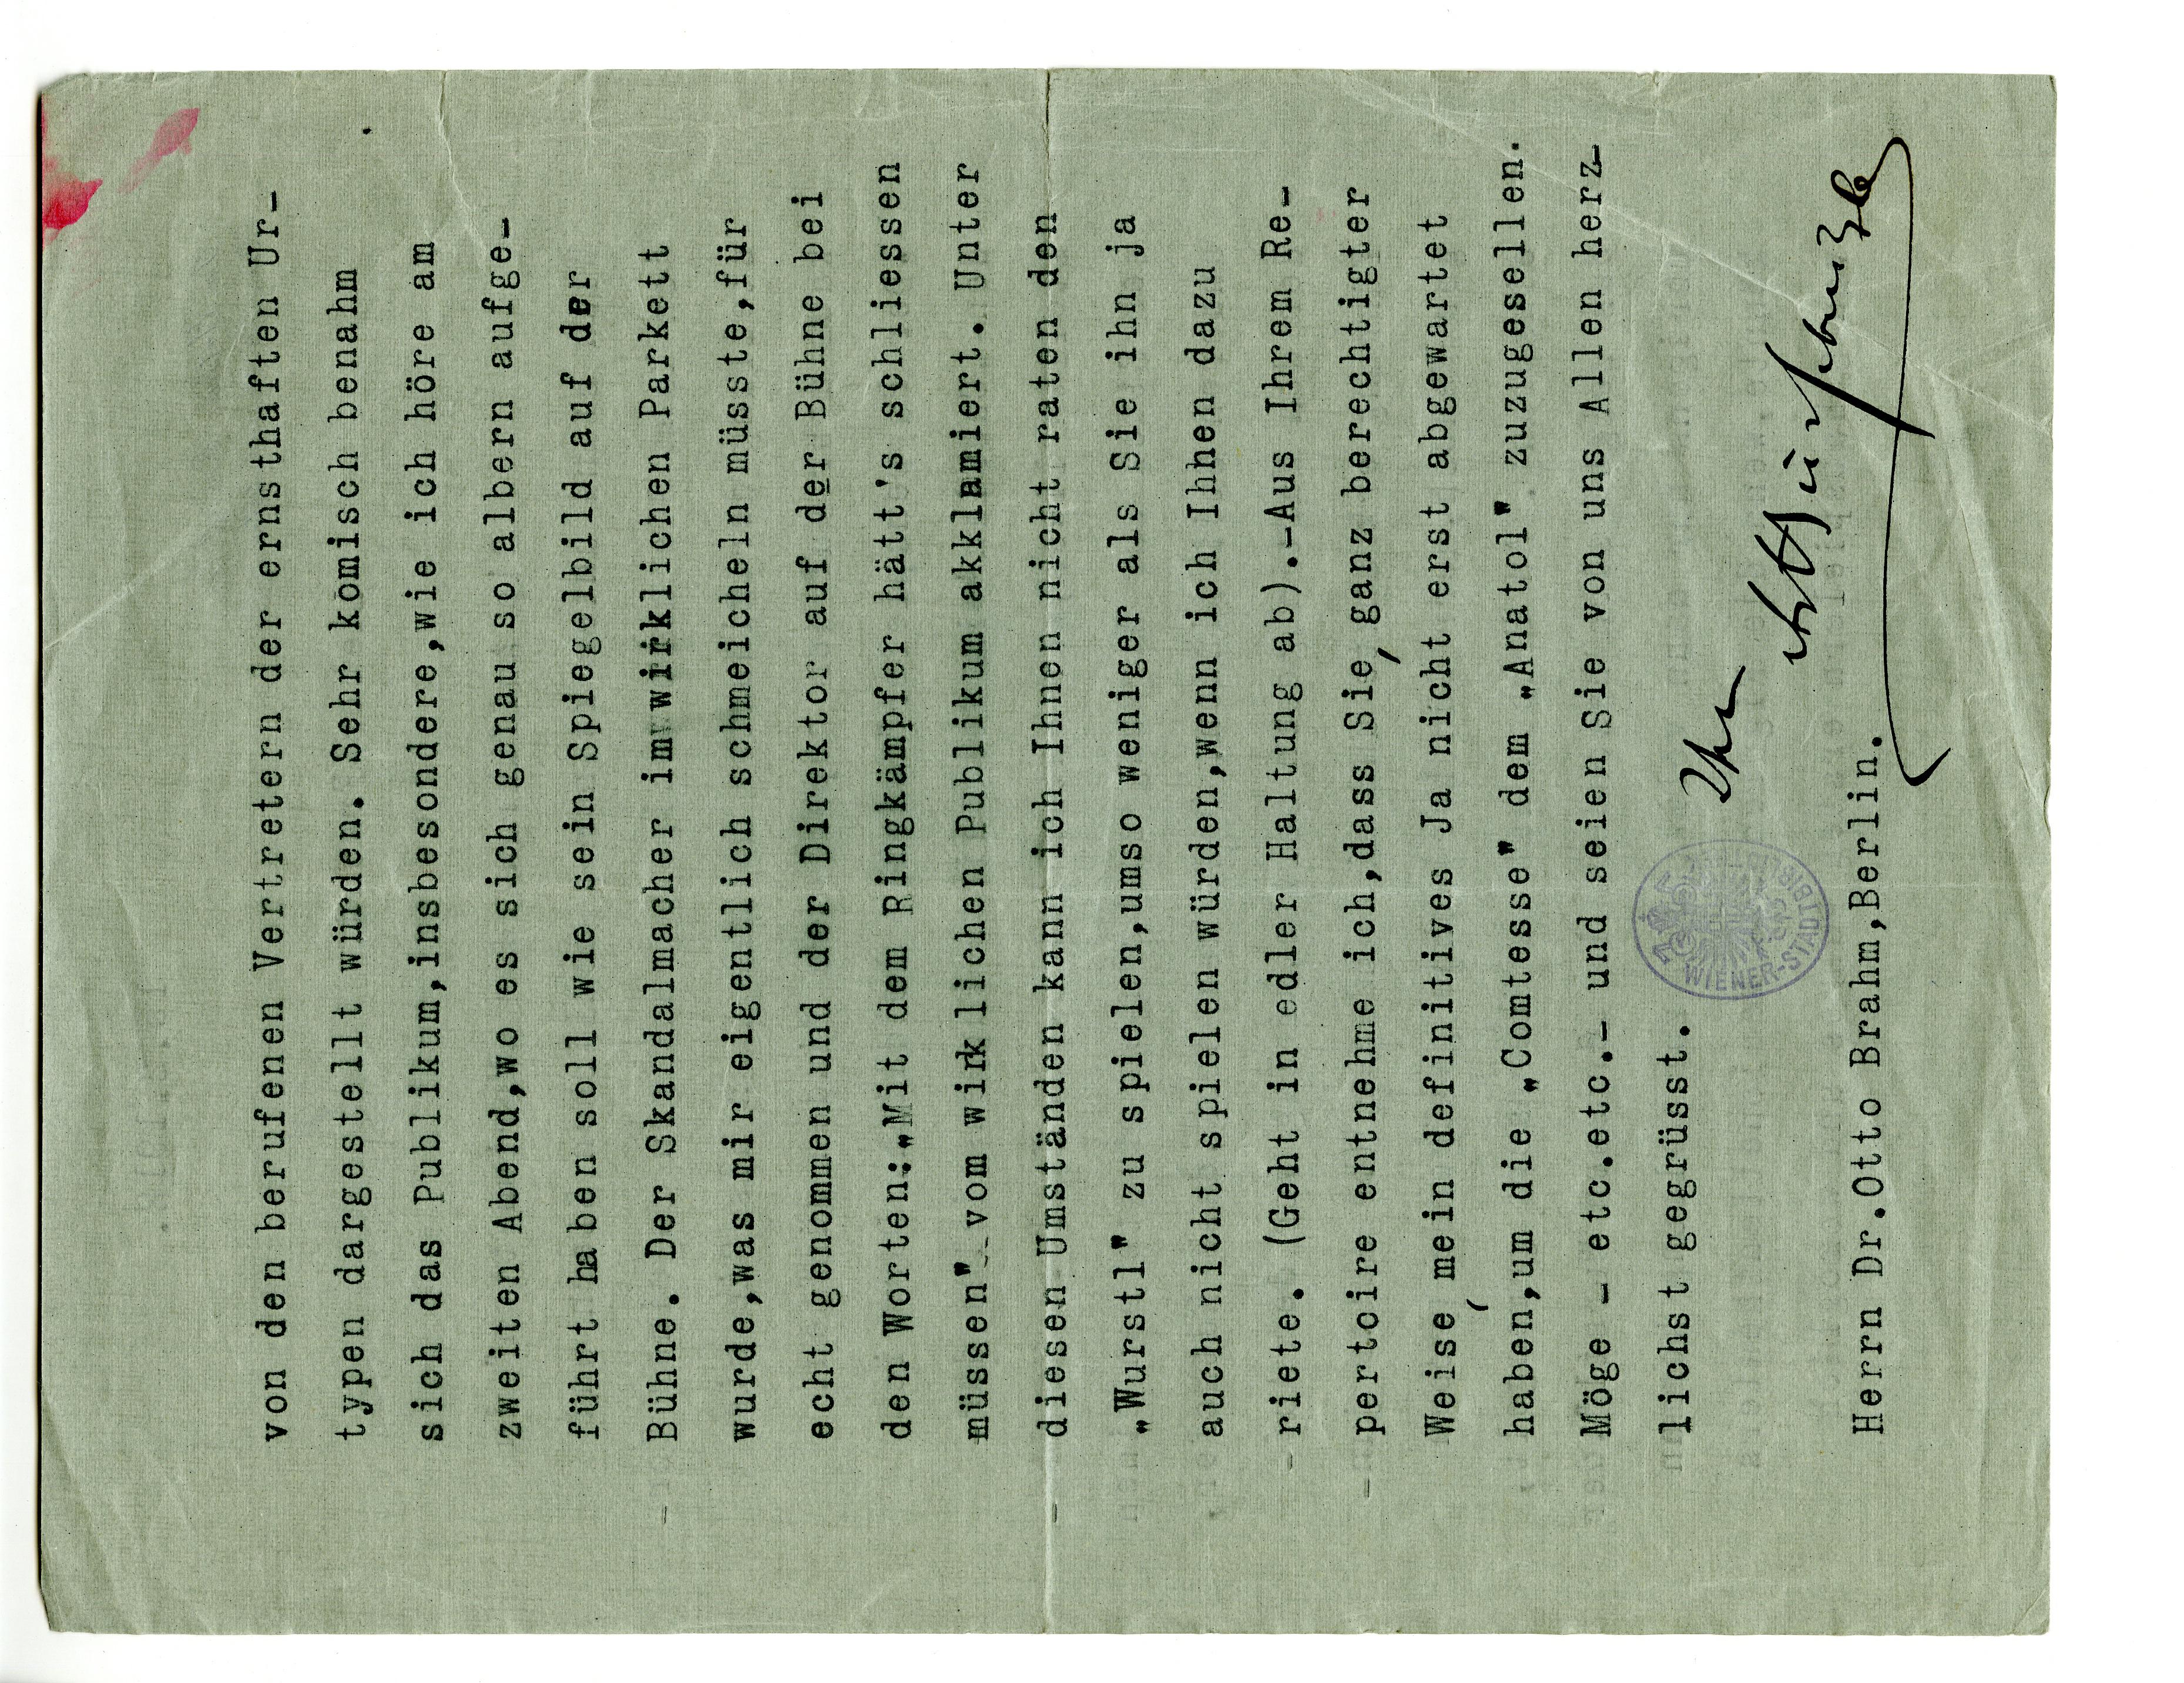 von den berufenen Vertretern der ernsthaften Ur-
typen dargestellt würden. Sehr komisch benahm
sich das Publikum,insbesondere,wie ich höre am
zweiten Abend,wo es sich genau so albern aufge-
führt haben soll wie sein Spiegelbild auf der
Bühne. Der Skandalmacher im wirklichen Parkett
wurde,was mir eigentlich schmeicheln müsste,für
echt genommen und der Direktor auf der Bühne bei
den Worten:„Mit dem Ringkämpfer hätt's schliessen
müssen" vom wirklichen Publikum akklamiert. Unter
diesen Umständen kann ich Ihnen nicht raten den
„Wurstl" zu spielen,umso weniger als Sie ihn ja
auch nicht spielen würden,wenn ich Ihnen dazu
riete. (Geht in edler Haltung ab).-Aus Ihrem Re-
pertoire entnehme ich,dass Sie, ganz berechtigter
Weise, mein definitives Ja nicht erst abgewartet
haben,um die „Comtesse" dem „Anatol" zuzugesellen.
Möge - etc.etc.- und seien Sie von uns Allen herz-
lichst gegrüsst.
Ihr
WIENER-STADTBIBLIOTHEK
Arthur Schnitzler
Herrn Dr.Otto Brahm,Berlin.